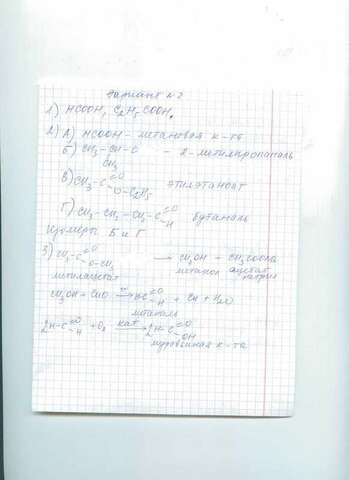 Вариант №2
1) HCOOH, C2H5COOH.
2) А) HCOOH - метановая к-та
б) CH3-CH-C - 2-метилпропаналь
CH3
в) CH3-C=O O-C2H5 этилэтаноат
г) CH3-CH2-CH2-C=O H бутаналь
изомеры Б и Г
3) CH3-C=O O-CH3 → CH3OH - CH3COONa
метилацетат метанол ацетат натрия
CH3OH + CuO →t° HC=O H + Cu + H2O
метаналь
2H-C=O H + O2 →кат 2H-C=O OH
муравьиная к-та